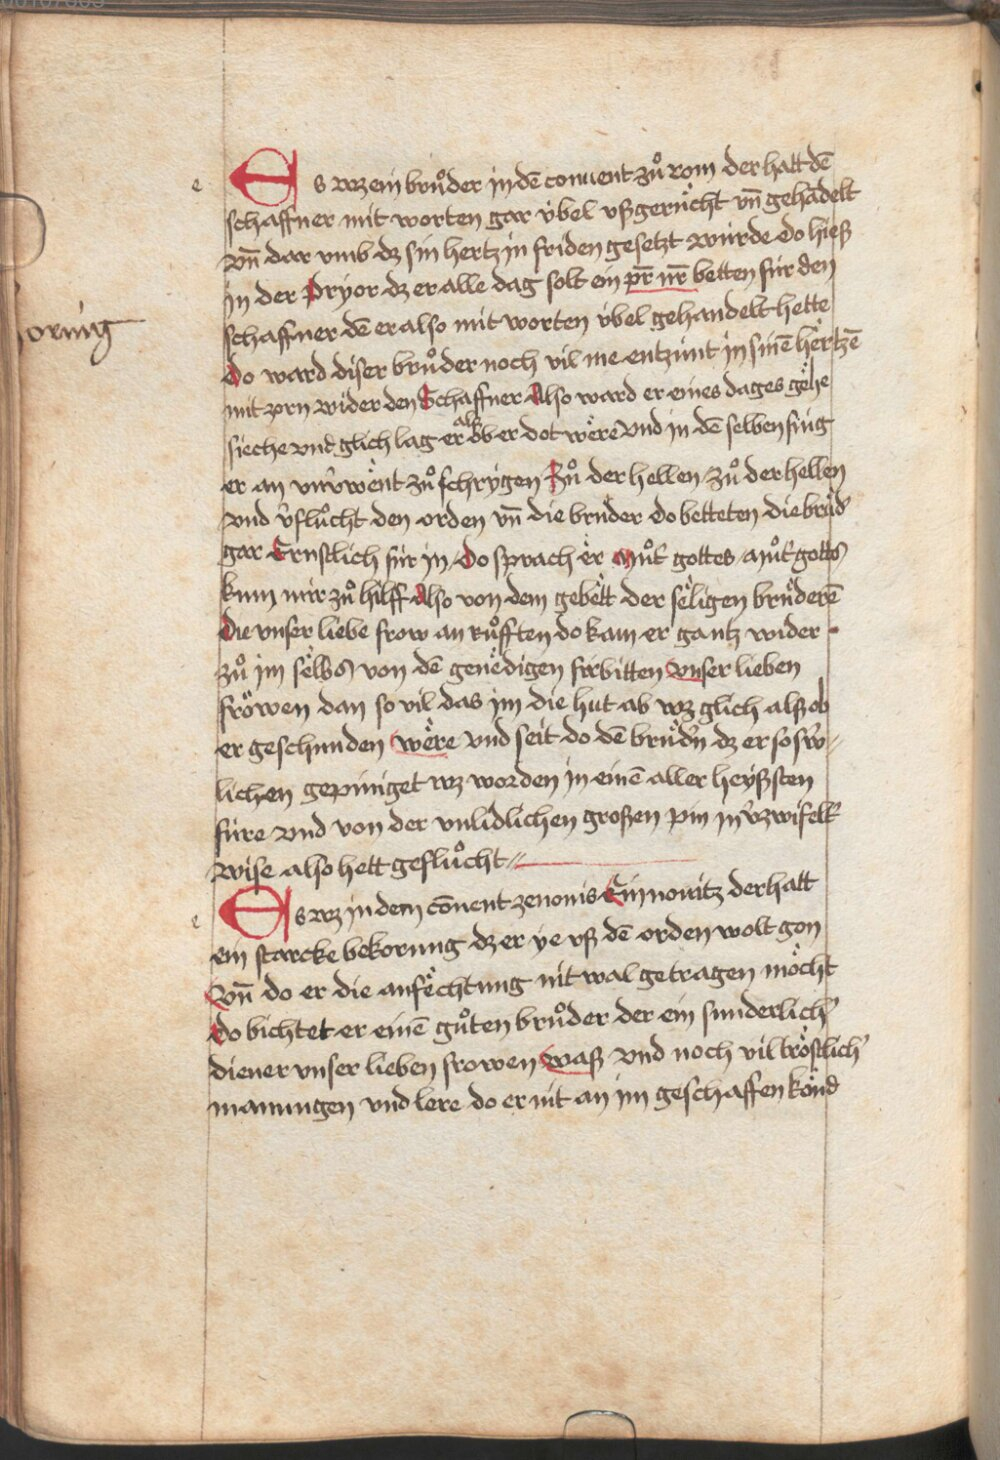 Es wz ein brůder in dē conuent zů rom der hatt dē
schaffner mit worten gar v̇bel vßgerücht vn̄ gehādelt
vn̄ dar vmb dz sin hertz in friden gesetzt würde do hieß
in der Pryor dz er alle dag solt ein pr̄ nr̄ betten für den
schaffner dē er also mit worten v̇bel gehandelt hette
Do ward diser brůder noch vil me entzünt in sinē hertzē
mit zorn wider den Schaffner Also ward er eines dages gehe
sieche vnd glich lag er als ob er dot were vnd in dē selben fing
er an zů schrygen Zů der hellen zů der hellen
vnd v̄flůcht den orden vn̄ die brüder do betteten die brüd'
gar Ernstlich für in / Do sprach er Můt' gottes / můt' gottes
kum mir zů hilff Also von dem gebett der seligen brüderē
Die vnser liebe frow an růfften do kam er gantz wider
zů im selbs von dē genedigen fürbitten vnser lieben
fröwen dan so vil das im die hut ab wz glich alß ob
er geschunden were vnd seit do dē brüd'n dz er so sw'=
lichen gepiniget wz worden in einē aller heyßsten
füre vnd von der vnlidlichen großen pin in v'zwifelt'
wise also hett geflůcht //
Es wz in dem cōuent zenonis Ein nouitz der hatt
ein starcke bekorung dz er ye vß dē orden wolt gon
Vn̄ do er die anfechtung nit wal getragen möcht
Do bichtet er einē gůten brůder der ein sunderlich'
diener vnser lieben frowen waß vnd noch vil tröstlich'
manungen vnd lere do er nit an im geschaffen könd